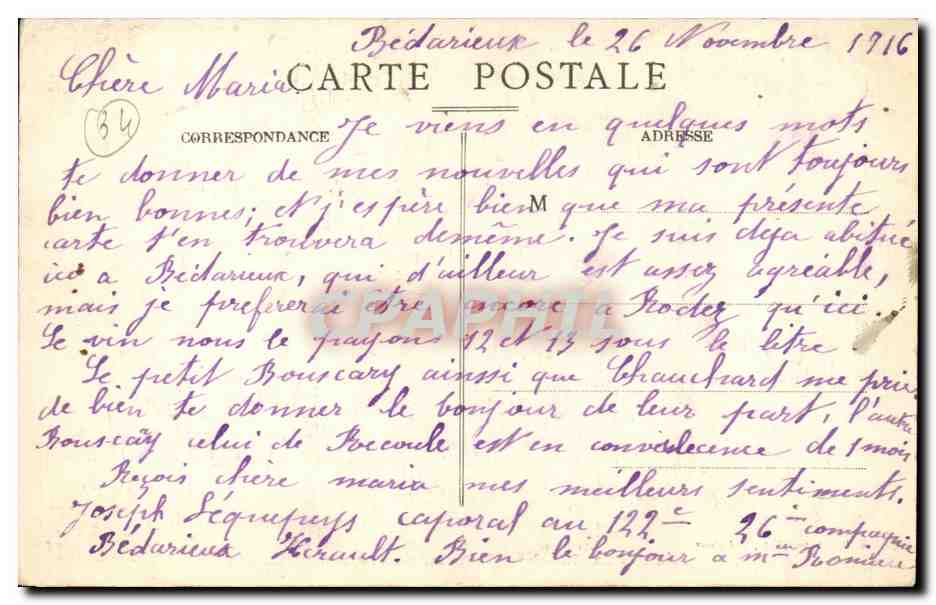 Bédarieux le 26 Novembre 1916
Chère Maria
CARTE POSTALE
34
CORRESPONDANCE
ADRESSE
Je viens en quelques mots
te donner de mes nouvelles qui sont toujours
bien bonnes; et j'espère bien que ma présente
M
carte t'en trouvera demême. Je suis deja abitué
ici a Bédarieux, qui d'ailleur est assez agréable,
mais je prefererai être encore a Rodez qu'ici.
CPAPHIL
Le vin nous le payons 12 et 13 sous le litre.
Le petit Bouscary ainsi que Chauchard me prie
de bien te donner le bonjour de leur part, l'autre
Bouscary celui de Recoule est en convalecence de 1 mois
Reçois chère maria mes meilleurs sentiments.
Joseph caporal au 122e 26ième compagnie
Bédarieux Hérault. Bien le bonjour a